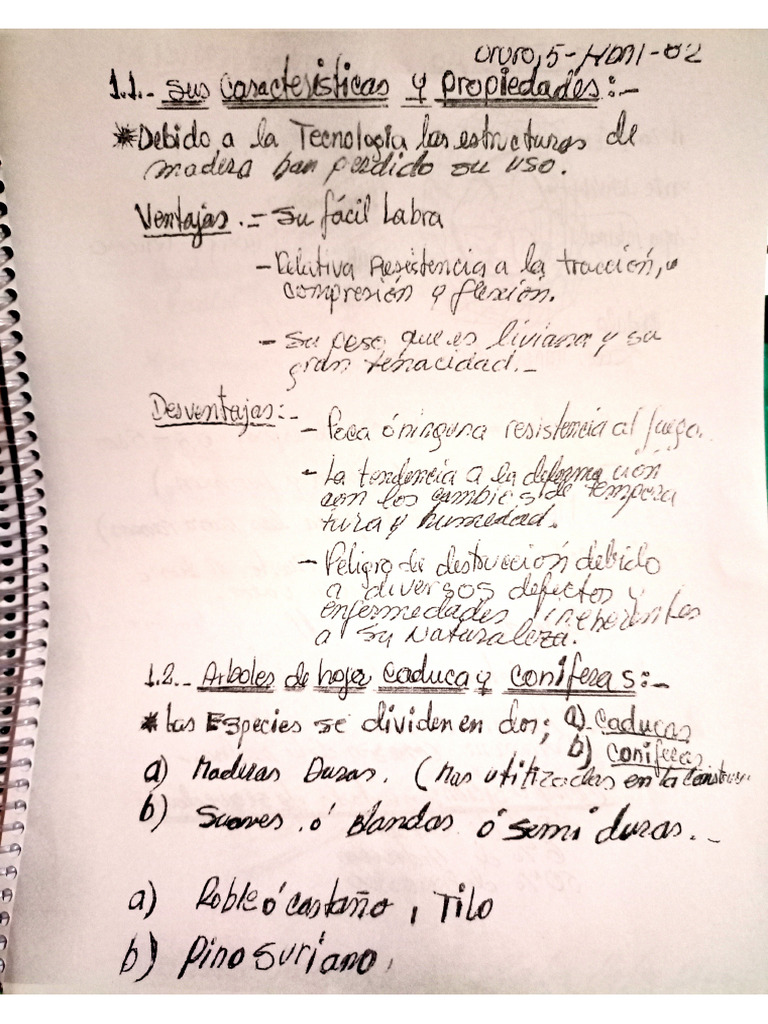 Oruro, 5-Abril-02
1.1.- Sus Caracteristicas y Propiedades:-
*Debido a la Tecnologia las estructuras de
madera han perdido su uso.
Ventajas.- - Su fácil Labra
- Relativa Resistencia a la tracción,
compresión y flexión.
- Su peso que es liviana y su
gran tenacidad.-
Desventajas:- - Poca ó ninguna resistencia al fuego.
- La tendencia a la deformación
con los cambios de tempera
tura y humedad.
- Peligro de destrucción debido
a diversos defectos y
enfermedades inherentes
a su Naturaleza.
1.2.- Arboles de hojas caduca y coniferas:-
* Las Especies se dividen en dos; a) Caducas
b) Coniferas
a) Maderas Duras. (Mas utilizadas en la
b) Suaves ó Blandas ó Semi duras.-
a) Roble ó castaño, Tilo
b) Pino Suriano,